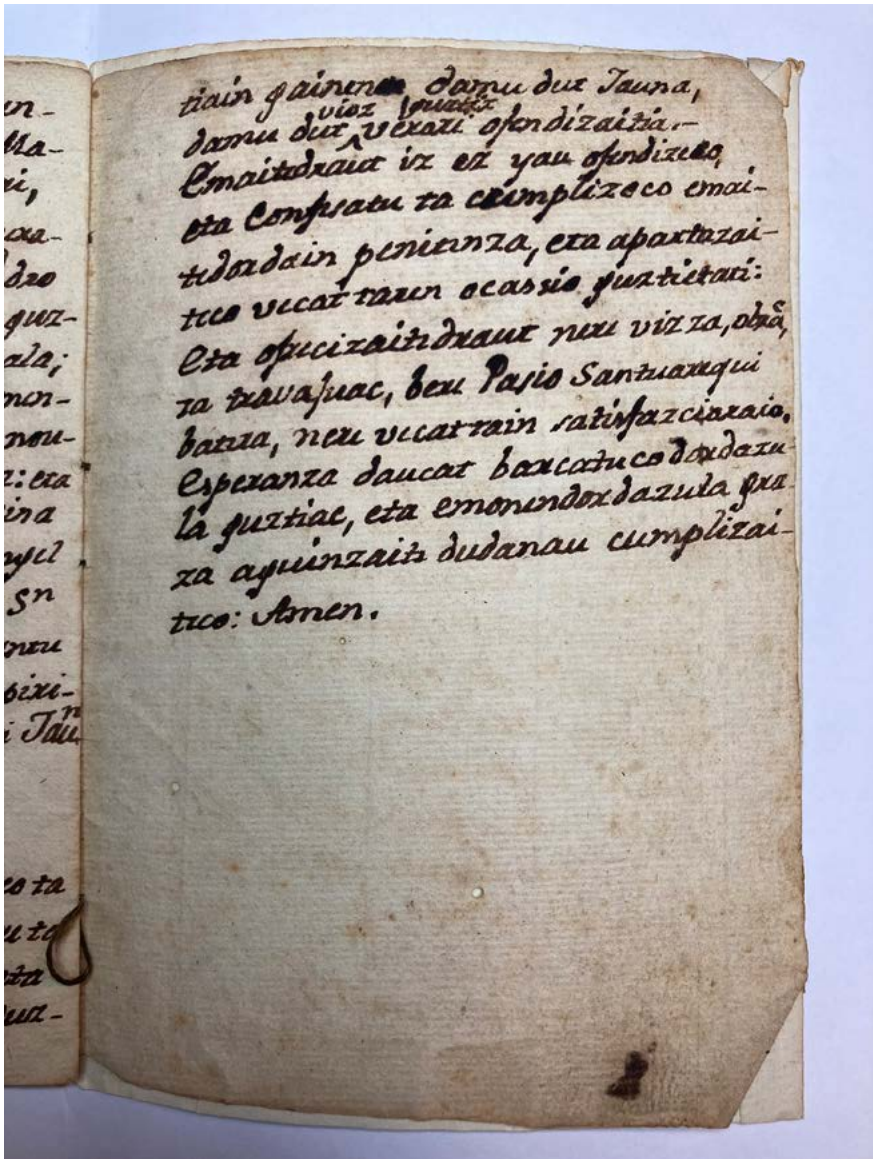 un-
Ma-
ri,
cra-
dro
guz-
ala;
men-
mou-
z: eta
ina
ngel
Sn
ntu
piri-
i Jaun
co ta
u ta
ata
uz-
tiain gainenen damu dut Jauna,
vioz guztiz
damu dut ^ verori ofendizaitia.-
Emaitedraut iz ez yau ofendizeco,
eta Confesatu ta cumplizeco emai-
tedordain penitenza, eta apartazai-
teco vecattaren ocassio guztietati:
Eta ofrecizaitedraut nere vizza, obra,
ta travajuac, bere Pasio Santuarequi
batera, nere vecattain satisfazcioraio.
Esperanza daucat barcatuco dordazu-
la guztiac, eta emonendordazula gra-
za aquinzaite dudanau cumplizai-
teco: Amen.